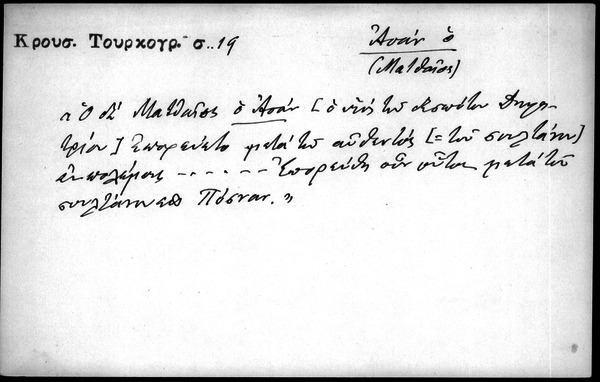 Κρουσ. Τουρκογρ. σ..19
Ἀσάν ὁ
(Ματθαῖος)
"Ὁ δὲ Ματθαῖος ὁ Ἀσάν [ὁ τοῦ Δεσπότου Δημη-
τρίου] ἐπορεύετο μετὰ τοῦ αὐθεντός [= τοῦ σουλτάνου]
ἐν πολέμοις - - - - - - Ἐπορεύθη οὖν οὗτος μετὰ τοῦ
σουλτάνου εἰς Πόσναν."